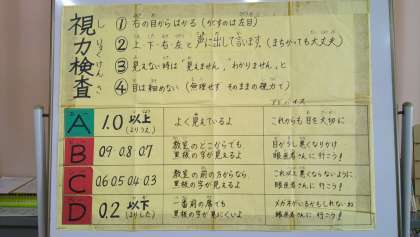 視力検査
しりょくけんさ
① 右の目からはかる (かくすのは左目)
② 上、下、右、左と声に出して言います。(まちがっても大丈夫)
③ 見えない時は「見えません」「わかりません」と
④ 目は細めない (無理せず そのままの視力で)
アドバイス
A 1.0 以上 よく見えているよ これからも目を大切に
B 0.9 0.8 0.7 教室のどこからでも 目がうし悪くなりかけ
黒板の字が見えるよ 眼医者さんに行こう!
C 0.6 0.5 0.4 0.3 教室の前の方からなら これ以上悪くならないように
黒板の字が見えるよ 眼医者さんに行こう!
D 0.2 以下 一番前の席でも メガネがいるかもしれないね
黒板の字が見にくいよ 眼医者さんに行こう!